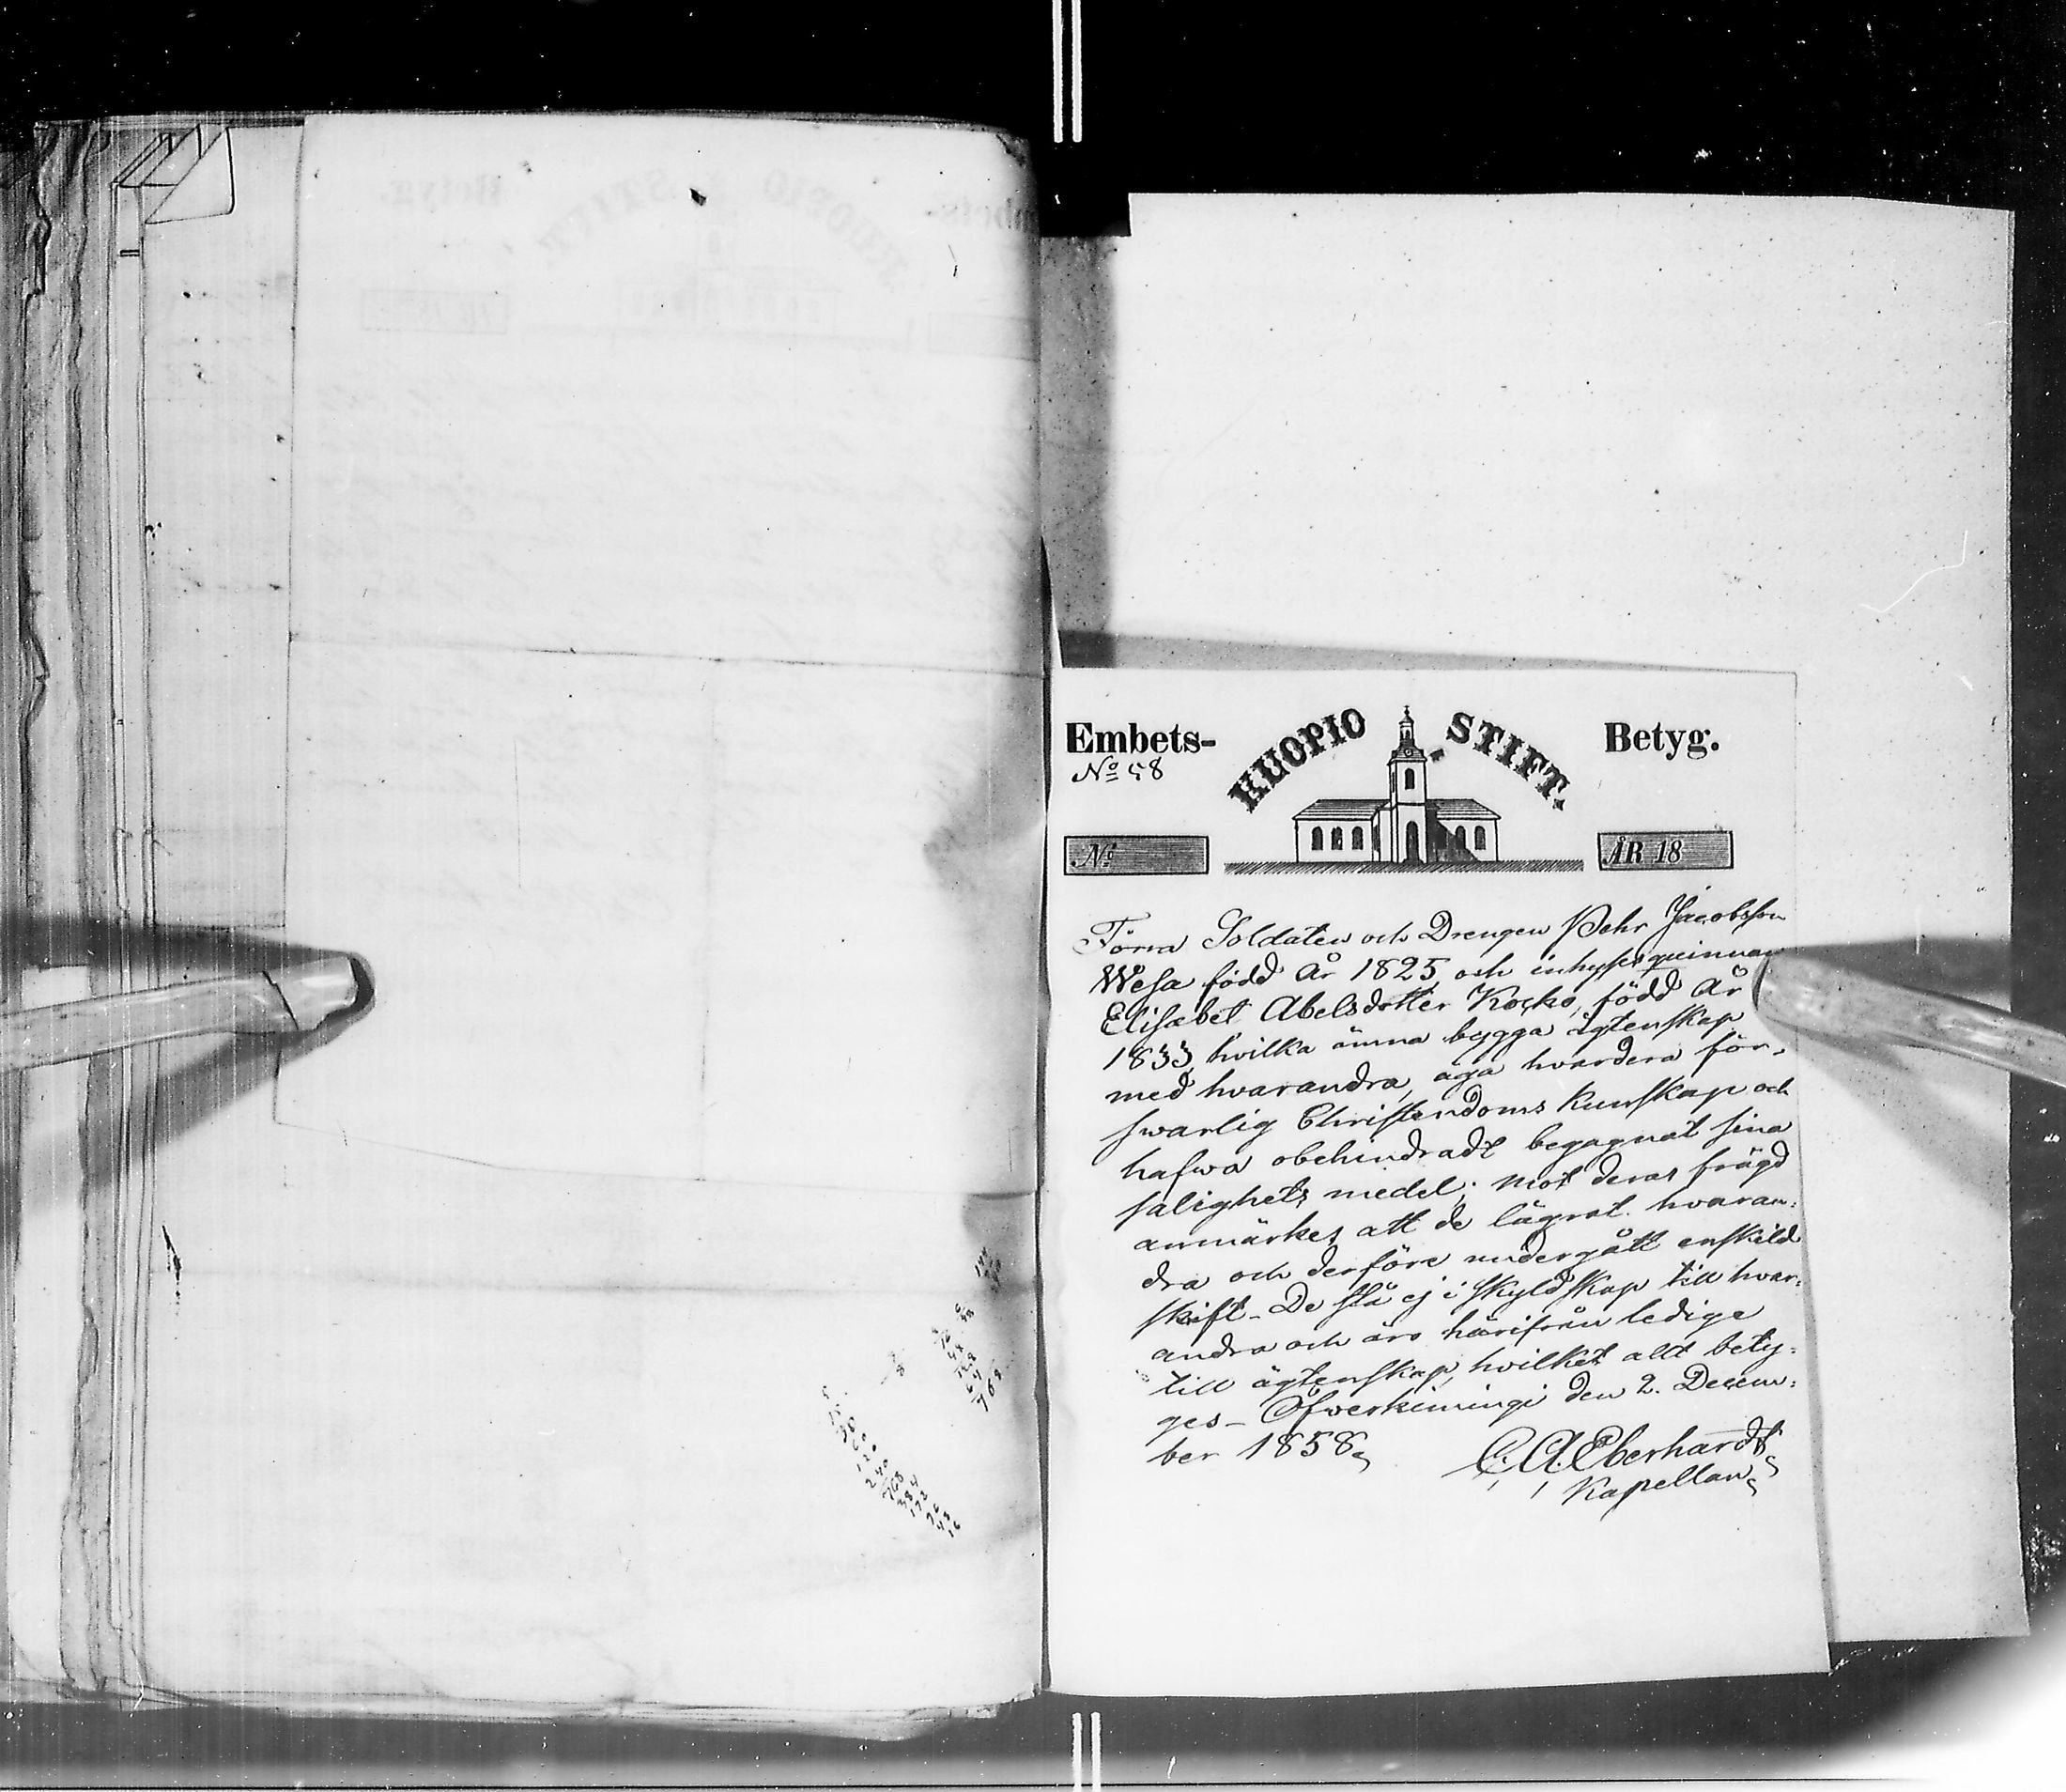 Embets-
KUOPIO-STIFT.
Betyg.
No 58
No
ÅR 18
Förra Soldaten och Drengen Pehr Jacobsson
Wesa född År 1825, och inhyses quinnan
Elisabet Abelsdotter Kocko, född År
1833, hvilka ämna bygga ägtenskap
med hvarandra, äga hvardera för-
swarlig Christendoms kunskap och
hafwa obehindradt begagnat sina
salighets medel; mot deras frägd
anmärkes att de lägrat hvaran:
dra och derföre undergått enskild
skrift - De stå ej i skyldskap till hvar:
andra och äro härifrån ledige
till ägtenskap, hvilket allt bety:
ges - Öfwerkiminge den 2. Decem:
ber 1858.
C. A. Eberhardt
Kapellan
768